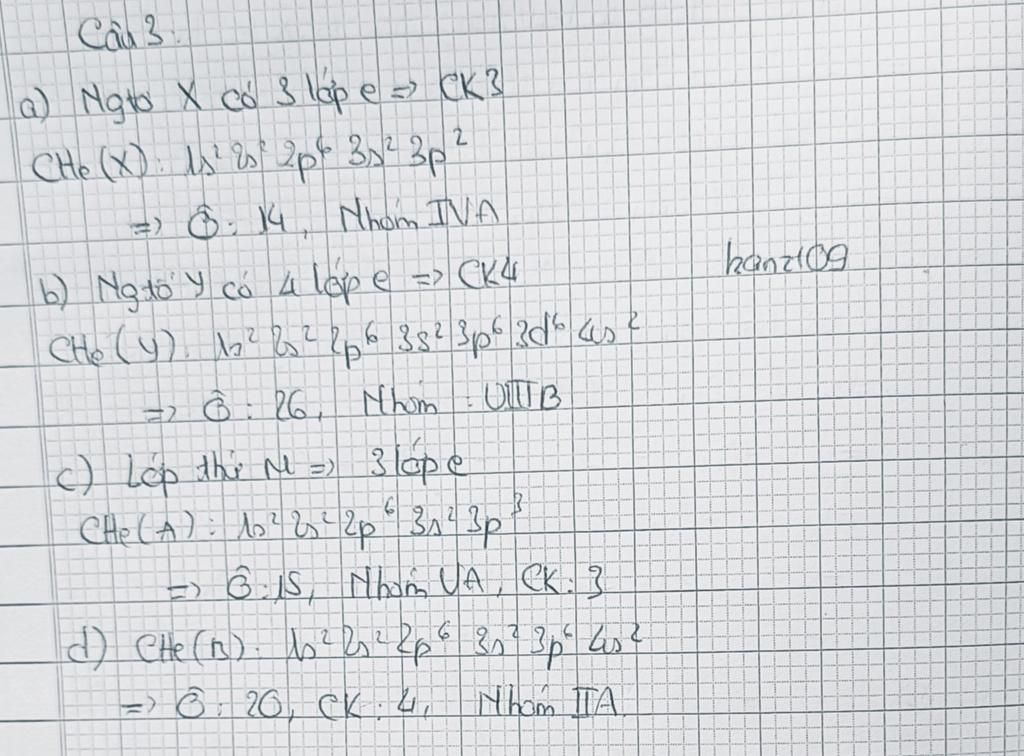 Câu 3:
a) Ngtố X có 3 lớp e => CK3
CHe(X): 1s² 2s² 2p⁶ 3s² 3p²
=> Ô: 14, Nhóm IVA
b) Ngtố Y có 4 lớp e => CK4
hanz109
CHe(Y): 1s² 2s² 2p⁶ 3s² 3p⁶ 3d⁶ 4s²
=> Ô: 26, Nhóm: VIIIB
c) Lớp thứ M => 3 lớp e
CHe(A): 1s² 2s² 2p⁶ 3s² 3p³
=> Ô: 15, Nhóm VA, CK: 3
d) CHe(B): 1s² 2s² 2p⁶ 3s² 3p⁶ 4s²
=> Ô: 20, CK: 4, Nhóm IIA